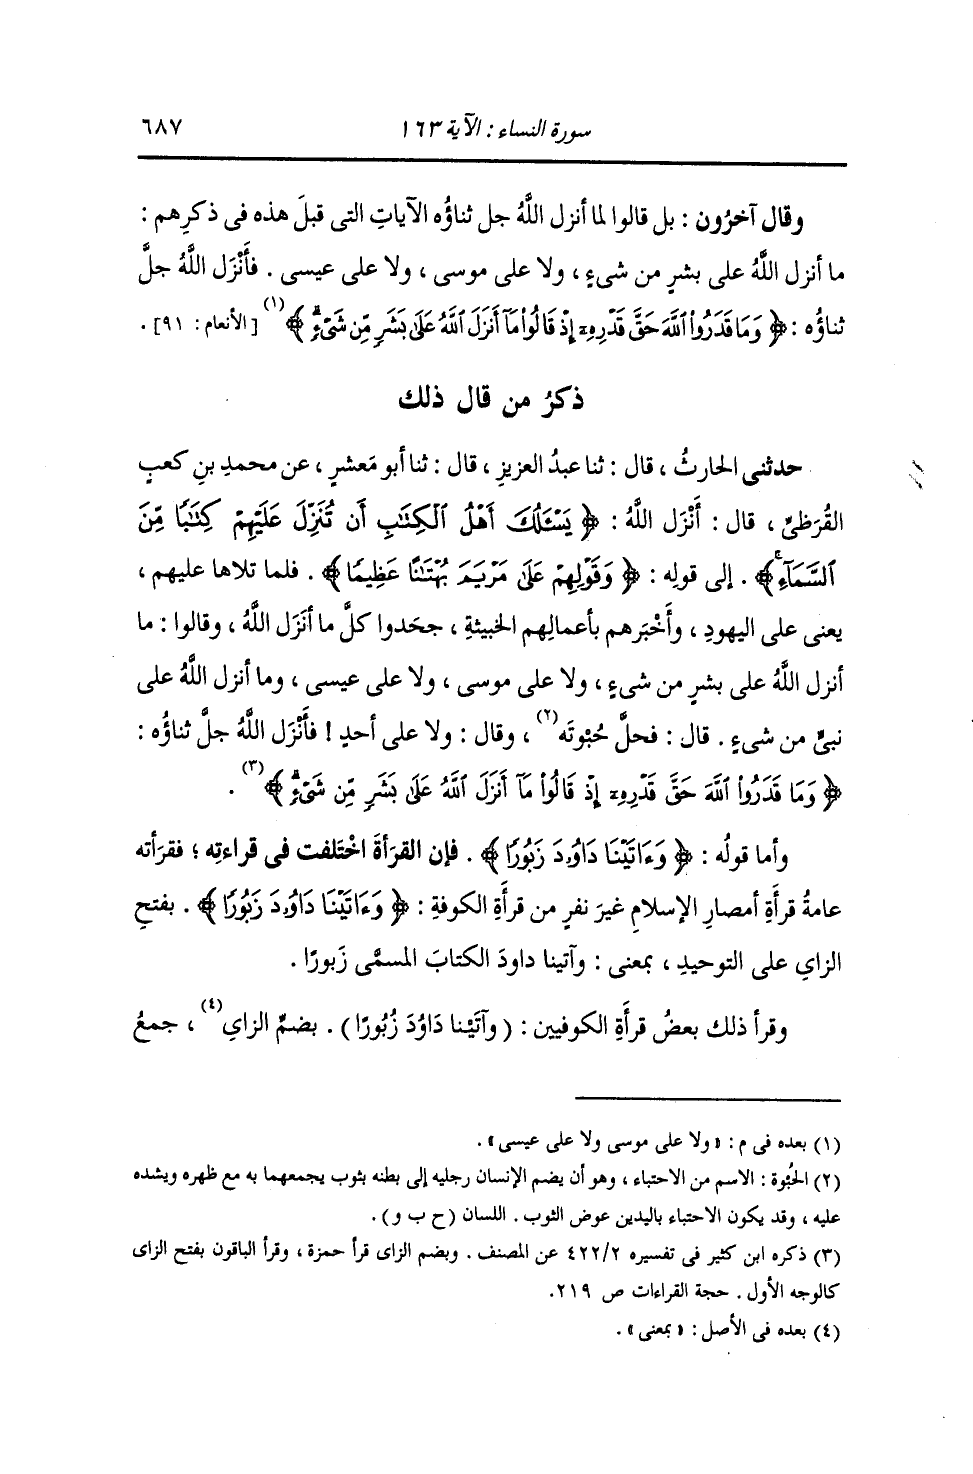 سورة النساء : الآية ١٦٣
٦٨٧
وقال آخرُون : بل قالوا لما أنزل اللَّهُ جل ثناؤُه الآياتِ التى قبلَ هذه فى ذكرِهم :
ما أنزل اللَّهُ على بشرٍ من شىءٍ ، ولا على موسى ، ولا على عيسى . فأَنْزَل اللَّهُ جلَّ
ثناؤُه : ﴿ وَمَا قَدَرُوا۟ ٱللَّهَ حَقَّ قَدْرِهِۦٓ إِذْ قَالُوا۟ مَآ أَنزَلَ ٱللَّهُ عَلَىٰ بَشَرٍ مِّن شَىْءٍۗ ﴾(١) [الأنعام : ٩١] .
ذكرُ من قال ذلك
حدثنى الحارثُ ، قال : ثنا عبدُ العزيزِ ، قال : ثنا أبو مَعشرٍ ، عن محمدِ بنِ كعبٍ
القُرَظىِّ ، قال : أَنْزَل اللَّهُ : ﴿ يَسْـَٔلُكَ أَهْلُ ٱلْكِتَٰبِ أَن تُنَزِّلَ عَلَيْهِمْ كِتَٰبًا مِّنَ
ٱلسَّمَآءِۚ ﴾ . إلى قولِه : ﴿ وَقَوْلِهِمْ عَلَىٰ مَرْيَمَ بُهْتَٰنًا عَظِيمًا ﴾ . فلما تلاها عليهم ،
يعنى على اليهودِ ، وأَخْبَرهم بأعمالِهم الخبيثةِ ، جحَدوا كلَّ ما أنَزَل اللَّهُ ، وقالوا : ما
أنزل اللَّهُ على بشرٍ من شىءٍ ، ولا على موسى ، ولا على عيسى ، وما أنزل اللَّهُ على
نبىٍّ من شىءٍ . قال : فحلَّ حُبْوتَه(٢) ، وقال : ولا على أحدٍ ! فأَنْزَل اللَّهُ جلَّ ثناؤُه :
﴿ وَمَا قَدَرُوا۟ ٱللَّهَ حَقَّ قَدْرِهِۦٓ إِذْ قَالُوا۟ مَآ أَنزَلَ ٱللَّهُ عَلَىٰ بَشَرٍ مِّن شَىْءٍۗ ﴾(٣) .
وأما قولُه : ﴿ وَءَاتَيْنَا دَاوُۥدَ زَبُورًا ﴾ . فإن القرَأةَ اخْتَلفت فى قراءتِه ؛ فقرَأته
عامةُ قرأةِ أمصارِ الإسلامِ غيرَ نفرٍ من قرأَةِ الكوفةِ : ﴿ وَءَاتَيْنَا دَاوُۥدَ زَبُورًا ﴾ . بفتحِ
الزاىِ على التوحيدِ ، بمعنى : وآتينا داودَ الكتابَ المسمَّى زَبورًا .
وقرأ ذلك بعضُ قرأَةِ الكوفيين : ( وآتَيْنا دَاوُدَ زُبُورًا ) . بضمِّ الزاىِ(٤) ، جمعُ
(١) بعده فى م : « ولا على موسى ولا على عيسى » .
(٢) الحُبْوة : الاسم من الاحتباء ، وهو أن يضم الإنسان رجليه إلى بطنه بثوب يجمعهما به مع ظهره ويشده
عليه ، وقد يكون الاحتباء باليدين عوض الثوب . اللسان (ح ب و) .
(٣) ذكره ابن كثير فى تفسيره ٤٢٢/٢ عن المصنف . وبضم الزاى قرأ حمزة ، وقرأ الباقون بفتح الزاى
كالوجه الأول . حجة القراءات ص ٢١٩.
(٤) بعده فى الأصل : « بمعنى » .